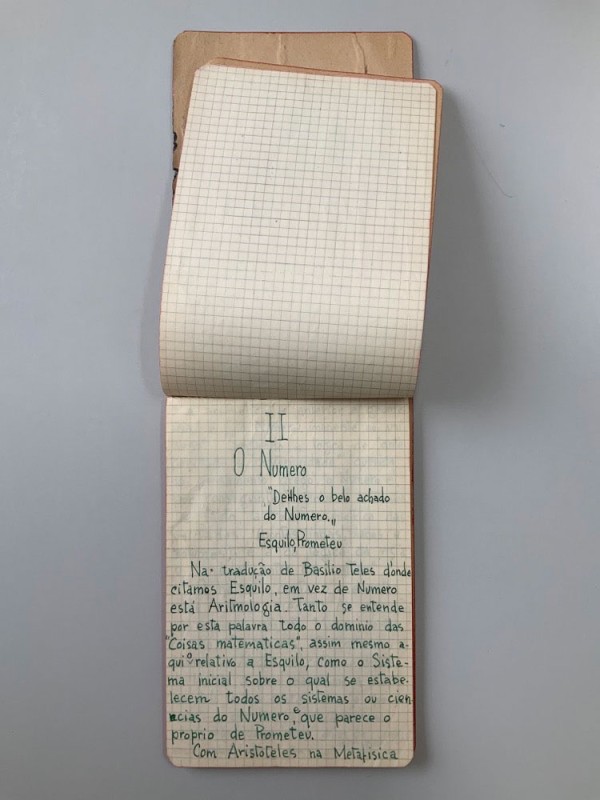 II
O Numero
"Dei-lhes o belo achado
do Numero.„
Esquilo, Prometeu
Na tradução de Basilio Teles d'onde
citamos Esquilo, em vez de Numero
está Aritmologia. Tanto se entende
por esta palavra todo o dominio das
"Coisas matematicas", assim mesmo a-
qui relativo a Esquilo, como o Siste-
ma inicial sobre o qual se estabe-
lecem todos os sistemas ou cien-
cias do Numero, e que parece o
proprio de Prometeu.
Com Aristoteles na Metafisica